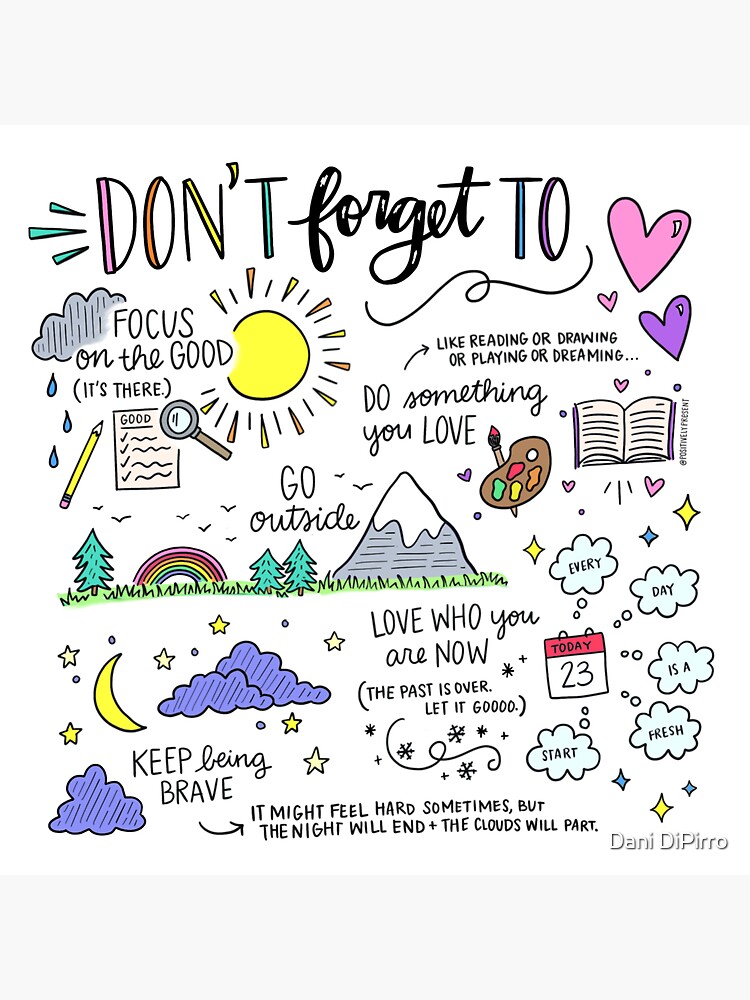 DON'T forget TO
FOCUS
on the GOOD
(IT'S THERE.)
GOOD
LIKE READING OR DRAWING
OR PLAYING OR DREAMING...
DO something
you LOVE
@POSITIVELYPRESENT
GO
outside
LOVE WHO you
are NOW
(THE PAST IS OVER.
LET IT GOOOO.)
EVERY
DAY
IS A
FRESH
START
TODAY
23
KEEP being
BRAVE
IT MIGHT FEEL HARD SOMETIMES, BUT
THE NIGHT WILL END + THE CLOUDS WILL PART.
Dani DiPirro